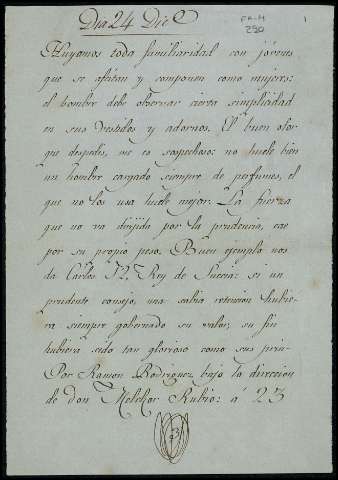 Dia 24 Dic.e
FA-M
290
1
Huyamos toda familiaridad con jóvenes
que se afetan y componen como mujeres:
el hombre debe observar cierta simplicidad
en sus vestidos y adornos. El buen olor
que despedis, me es sospechoso: no huele bien
un hombre cargado siempre de perfumes, el
que no los usa huele mejor. La fuerza
que no va dirijida por la prudencia, cae
por su propio peso. Buen ejemplo nos
da Carlos 12, Rey de Suecia: si un
prudente consejo, una sabia retencion hubie-
ra siempre gobernado su valor, su fin
hubiera sido tan glorioso como sus prin-
Por Ramon Rodriguez bajo la direccion
de don Melchor Rubio: a 23